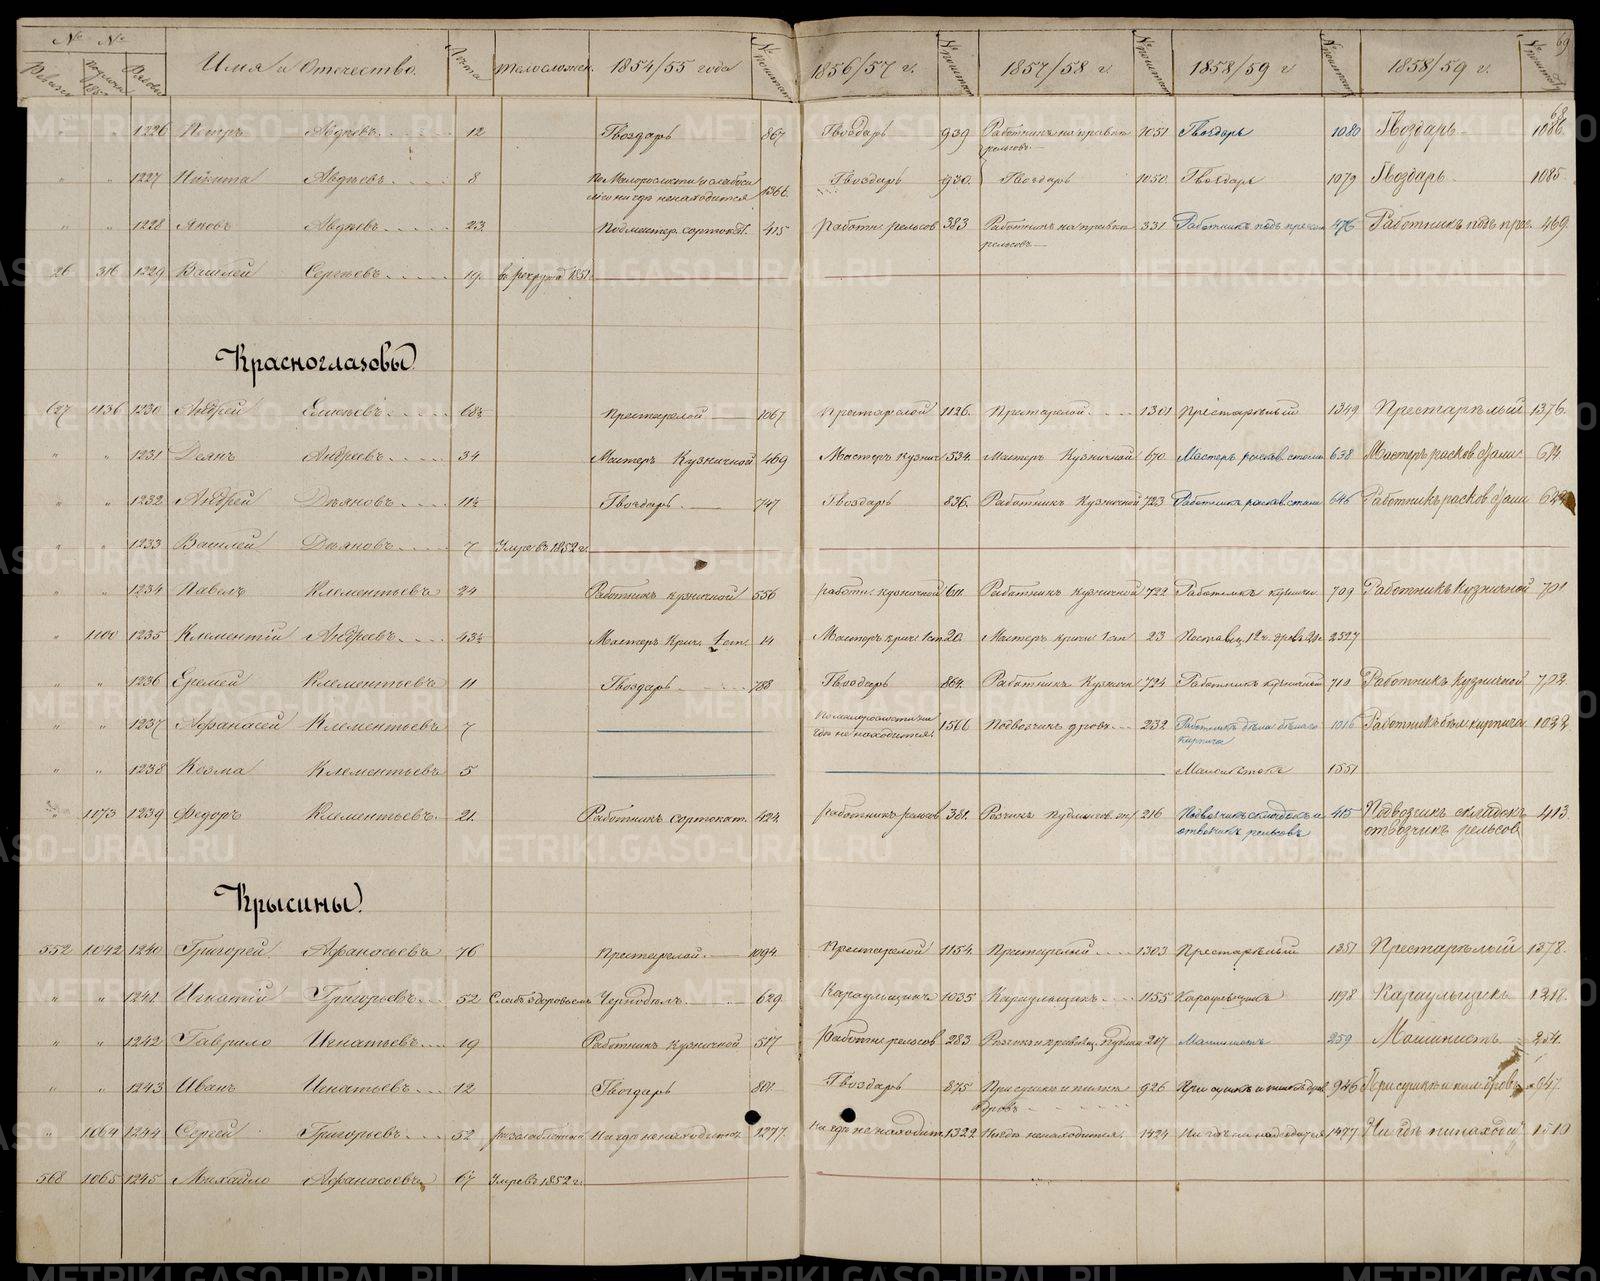 № № Имя и Отечество. Лета Телосложен. 1854/55 года № по штат 1856/57 г. № по штат 1857/58 г № по штат 1858/59 г № по штат 1858/59 г. № по штат 69
1226 Петръ Авдѣевъ 12 Гвоздарь 867 Гвоздарь 939 Работникъ на правкѣ рельсовъ 1051 Гвоздарь 1080 Гвоздарь 1086
" " 1227 Никита Авдѣевъ 8 По малорослости и слабосилiю нигдѣ ненаходится 1366 Гвоздарь 930 Гвоздарь 1050 Гвоздарь 1079 Гвоздарь 1085
" " 1228 Яковъ Авдѣевъ 23 Подмастер. сортокат. 415 работн рельсов 383 Работникъ на правкѣ рельсовъ 331 Работникъ подъ пресом 476 Работникъ подъ прес. 469
26 316 1229 Василей Сергѣевъ 19 въ рекрута 1851
Красноглазовы
627 1136 1230 Андрей Елисѣевъ 68½ Престарелой 1067 престарелой 1126 Престарелой 1301 Престарѣлый 1349 Престарѣлый 1376
" " 1231 Деянъ Андреевъ 34 Мастеръ Кузничной 469 Мастеръ кузнич 534 Мастеръ Кузничной 670 Мастеръ расков. стали 638 Мастеръ расков стали 614
" " 1232 Андрей Дѣяновъ 11½ Гвоздарь 747 Гвоздарь 836 Работникъ Кузничной 723 Работникъ расков. стали 646 Работникъ расков стали
" " 1233 Василей Дѣяновъ 7 Умре въ 1852 г.
" " 1234 Павелъ Клементьевъ 24 Работникъ кузничной 556 работн. кузничной 611 Работникъ Кузничной 722 Работникъ кузнич 709 Работникъ Кузничной 701
" 1100 1235 Клементiй Андреевъ 43½ Мастеръ Крич. 1 ст. 14 Мастеръ крич. 1 ст 20 Мастеръ кричн 1 ст 23 2527
" " 1236 Еремей Клементьевъ 11 Гвоздарь 788 Гвоздарь 864 Работникъ Кузничн 724 Работникъ кузничной 710 Работникъ Кузничной 702
" " 1237 Афанасей Клементьевъ 7 По малорослости нигдѣ не находится 1566 Подвозчикъ дровъ 232 Работникъ дѣла бѣлаго кирпича 1016 Работникъ бѣл кирпича 1022
" " 1238 Козма Клементьевъ 5 Малолѣтокъ 1551
1073 1239 Федоръ Клементьевъ 21 Работникъ сортокат. 424 работникъ рельсов 381 216 Подвозчикъ склядокъ и отвозчикъ рельсовъ 415 Подвозчик склядокъ отвозчик рельсов 413
Крысины
552 1042 1240 Григорей Афанасьевъ 76 Престарелой 1094 Престарелой 1154 Престарелый 1303 Престарѣлый 1351 Престарѣлый 1378
" " 1241 Игнатiй Григорьевъ 52 Слабъ здоровьемъ 629 Караульщикъ 1035 Караульщикъ 1155 Караульщикъ 1198 Караульщикъ 1218
" " 1242 Гаврило Игнатьевъ 19 Работникъ кузничной 517 Работн рельсов 283 217 Машинистъ 259 Машинистъ 254
" " 1243 Иванъ Игнатьевъ 12 Гвоздарь 801 Гвоздарь 875 При сушкѣ и пилкѣ дровъ 926 При сушкѣ и пилкѣ дров 946 При сушкѣ и пилк дровъ 947
" 1064 1244 Сергей Григорьевъ 52 разслабленный Нигдѣ ненаходится 1277 Нигдѣ не находит. 1322 Нигдѣ ненаходится 1424 Нигдѣ ненаходится 1477 Нигдѣ ненаход 1510
568 1065 1245 Михайло Афанасьевъ 67 Умре въ 1852 г.
METRIKI.GASO-URAL.RU